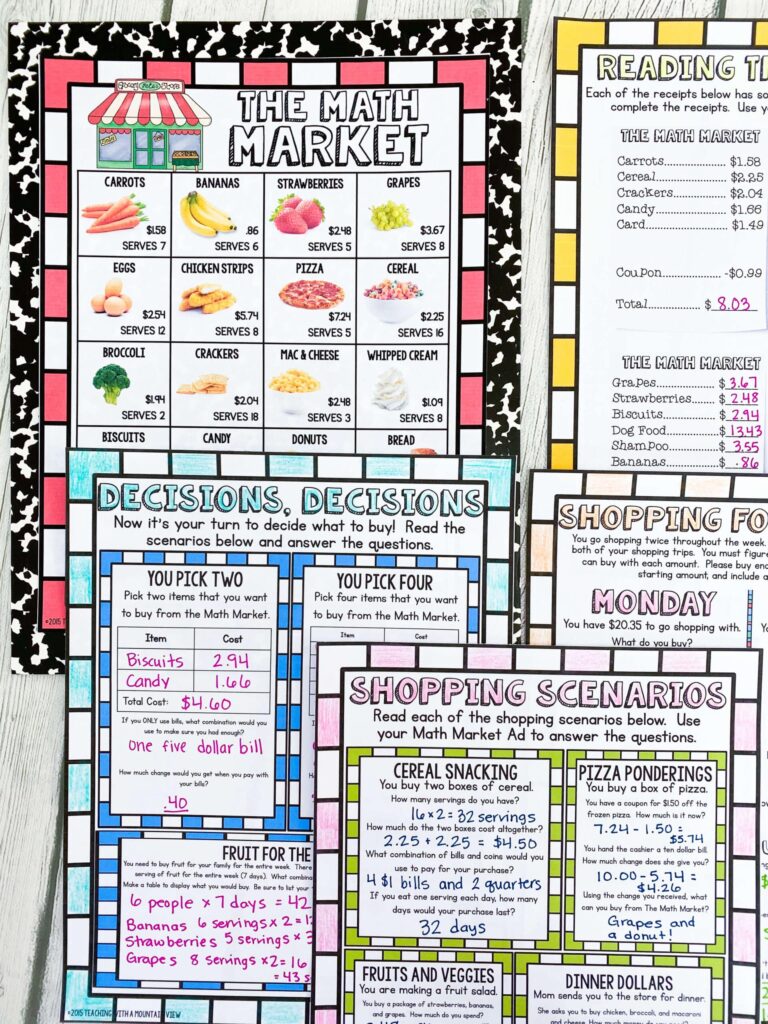 THE MATH
MARKET
CARROTS
$1.58
SERVES 7
BANANAS
.86
SERVES 6
STRAWBERRIES
$2.48
SERVES 5
GRAPES
$3.67
SERVES 8
EGGS
$2.54
SERVES 12
CHICKEN STRIPS
$5.74
SERVES 8
PIZZA
$7.24
SERVES 5
CEREAL
$2.25
SERVES 16
BROCCOLI
$1.94
SERVES 2
CRACKERS
$2.04
SERVES 18
MAC & CHEESE
$2.48
SERVES 3
WHIPPED CREAM
$1.09
SERVES 8
BISCUITS
CANDY
DONUTS
BREAD
©2015
READING T
Each of the receipts below has so
complete the receipts. Use y
THE MATH MARKET
Carrots................ $1.58
Cereal.................. $2.25
Crackers............... $2.04
Candy................... $1.66
Card..................... $1.49
Coupon................ -$0.99
Total................ $ 8.03
THE MATH MARKET
Grapes................ $ 3.67
Strawberries....... $ 2.48
Biscuits.............. $ 2.94
Dog Food............ $ 13.43
Shampoo............. $ 3.55
Bananas.............. $ .86
DECISIONS, DECISIONS
Now it's your turn to decide what to buy! Read the
scenarios below and answer the questions.
YOU PICK TWO
Pick two items that you want
to buy from the Math Market.
Item Cost
Biscuits 2.94
Candy 1.66
Total Cost: $4.60
If you ONLY use bills, what combination would you
use to make sure you had enough?
One five dollar bill
How much change would you get when you pay with
your bills?
.40
YOU PICK FOUR
Pick four items that you want
to buy from the Math Market.
Item Cost
FRUIT FOR THE
You need to buy fruit for your family for the entire week. There
serving of fruit for the entire week (7 days). What combina
Make a table to display what you would buy. Be sure to list your
6 people x 7 days = 42
Bananas 6 servings x 2 = 1
Strawberries 5 servings x 3
Grapes 8 servings x 2 = 16
= 43 s
©2015 TEACHING WITH A MOUNTAIN VIEW
SHOPPING FO
You go shopping twice throughout the week.
both of your shopping trips. You must figure
can buy with each amount. Please buy en
starting amount, and include a
MONDAY
You have $20.35 to go shopping with.
What do you buy?
SHOPPING SCENARIOS
Read each of the shopping scenarios below. Use
your Math Market Ad to answer the questions.
CEREAL SNACKING
You buy two boxes of cereal.
How many servings do you have?
16 x 2 = 32 servings
How much do the two boxes cost altogether?
2.25 + 2.25 = $4.50
What combination of bills and coins would you
use to pay for your purchase?
4 $1 bills and 2 quarters
If you eat one serving each day, how many
days would your purchase last?
32 days
PIZZA PONDERINGS
You buy a box of pizza.
You have a coupon for $1.50 off the
frozen pizza. How much is it now?
7.24 - 1.50 =
$5.74
You hand the cashier a ten dollar bill.
How much change does she give you?
10.00 - 5.74 =
$4.26
Using the change you received, what
can you buy from The Math Market?
Grapes and
a donut!
FRUITS AND VEGGIES
You are making a fruit salad.
You buy a package of strawberries, bananas,
and grapes. How much do you spend?
DINNER DOLLARS
Mom sends you to the store for dinner.
She asks you to buy chicken, broccoli, and macaroni